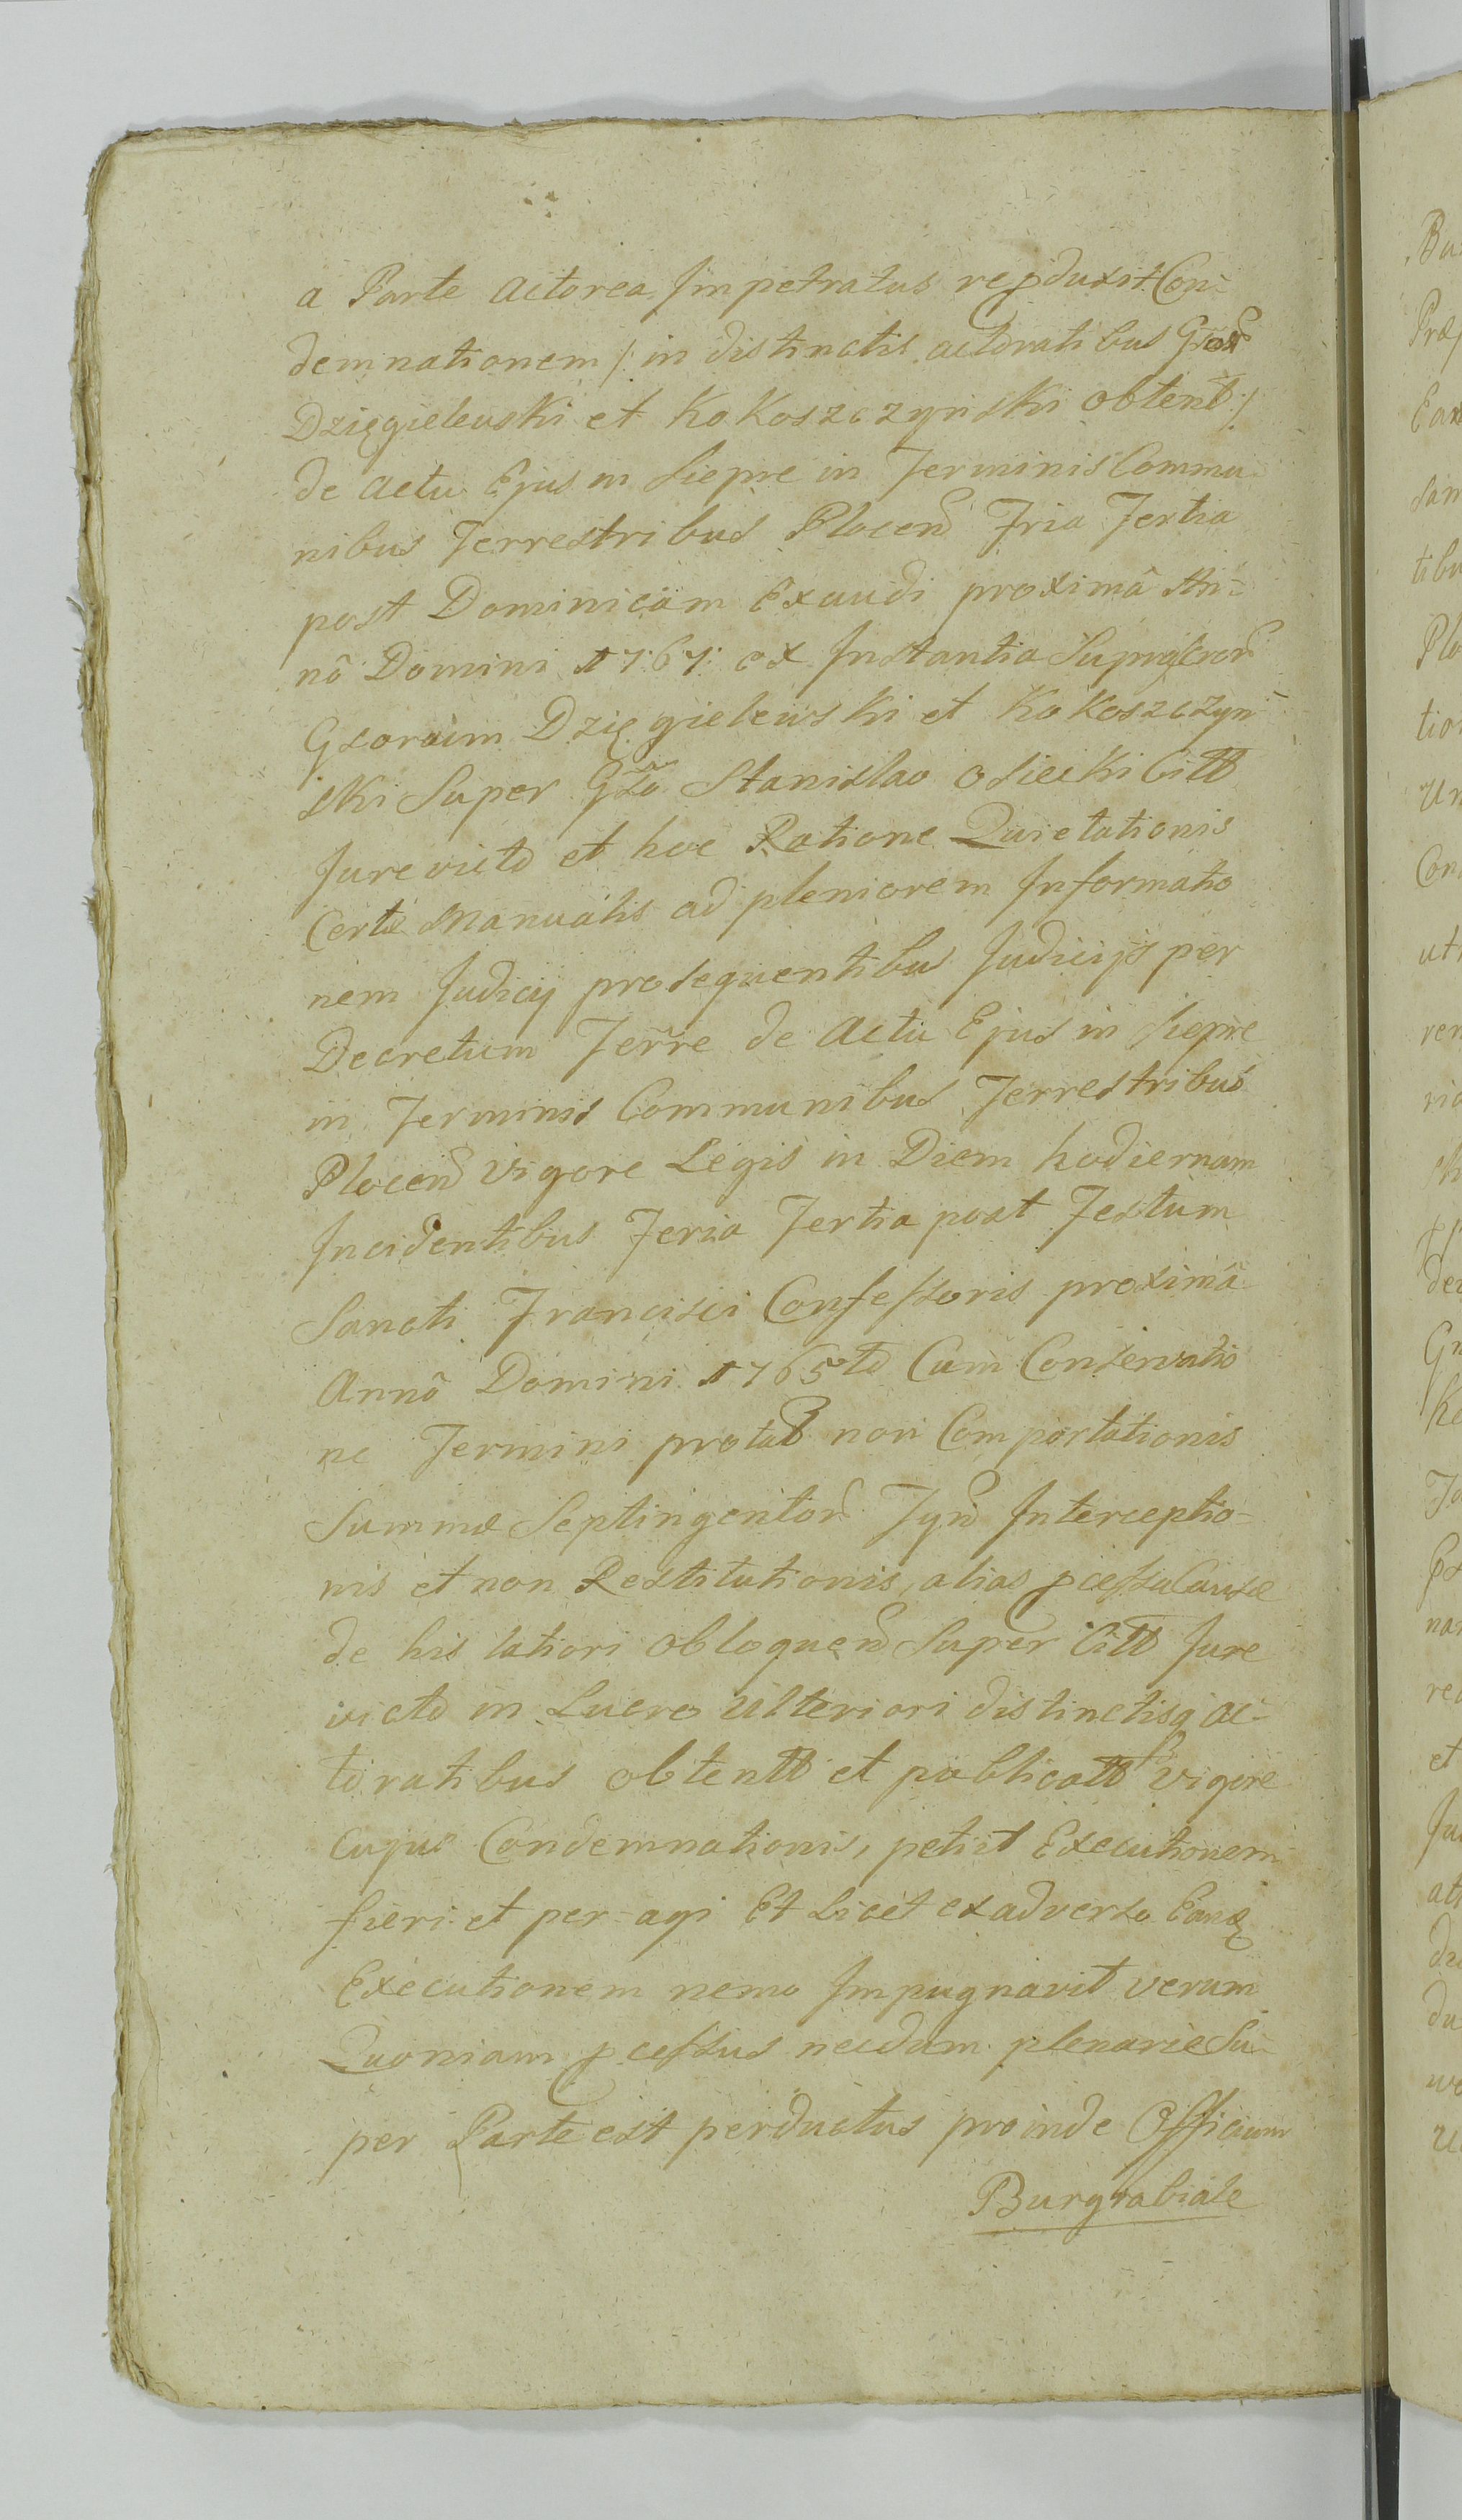 a Parte Actorea Impetratus repduxit Con-
demnationem /: in distinctis actoratibus
Dzięgielewski et Kokoszczyński obtent :/
de Actu Ejus in Siepie in Terminis Commu
nibus Terrestribus Plocen Fria Tertia
post Dominicam Exaudi proximâ An-
nô Domini 1767 ex Instantia
Gsorum Dzięgielewski et Kokoszczyń-
ski Super Gso Stanislao Osiecki Citt
Jure victo et hoc Ratione Quietationis
Certæ Manualis ad pleniorem Informatio
nem Judicij prosequentibus Judicijs per
Decretum Terre de Actu Ejus in Siepie
in Terminis Communibus Terrestribus
Plocen vigore Legis in Diem hodiernam
Incidentibus Feria Tertia post Festum
Sancti Francisci Confessoris proximâ
Annô Domini 1765to Cum Conservatio
ne Termini protab non Comportationis
Summæ Septingentor Tyn Interceptio-
nis et non Restitutionis, alias pcessu Causæ
de his latiori obloquen Super Citt Jure
victo in Lucro Ulteriori distinctisq ac-
toratibus obtentt et publicatt vigore
cujus Condemnationis, petiit Executionem
fieri et per-agi Et Licet ex adverso Eanq
Executionem nemo Impugnavit verum
Quoniam pcessus necdum plenarie Su-
per Parte est perductus proinde Officium
Burgrabiale